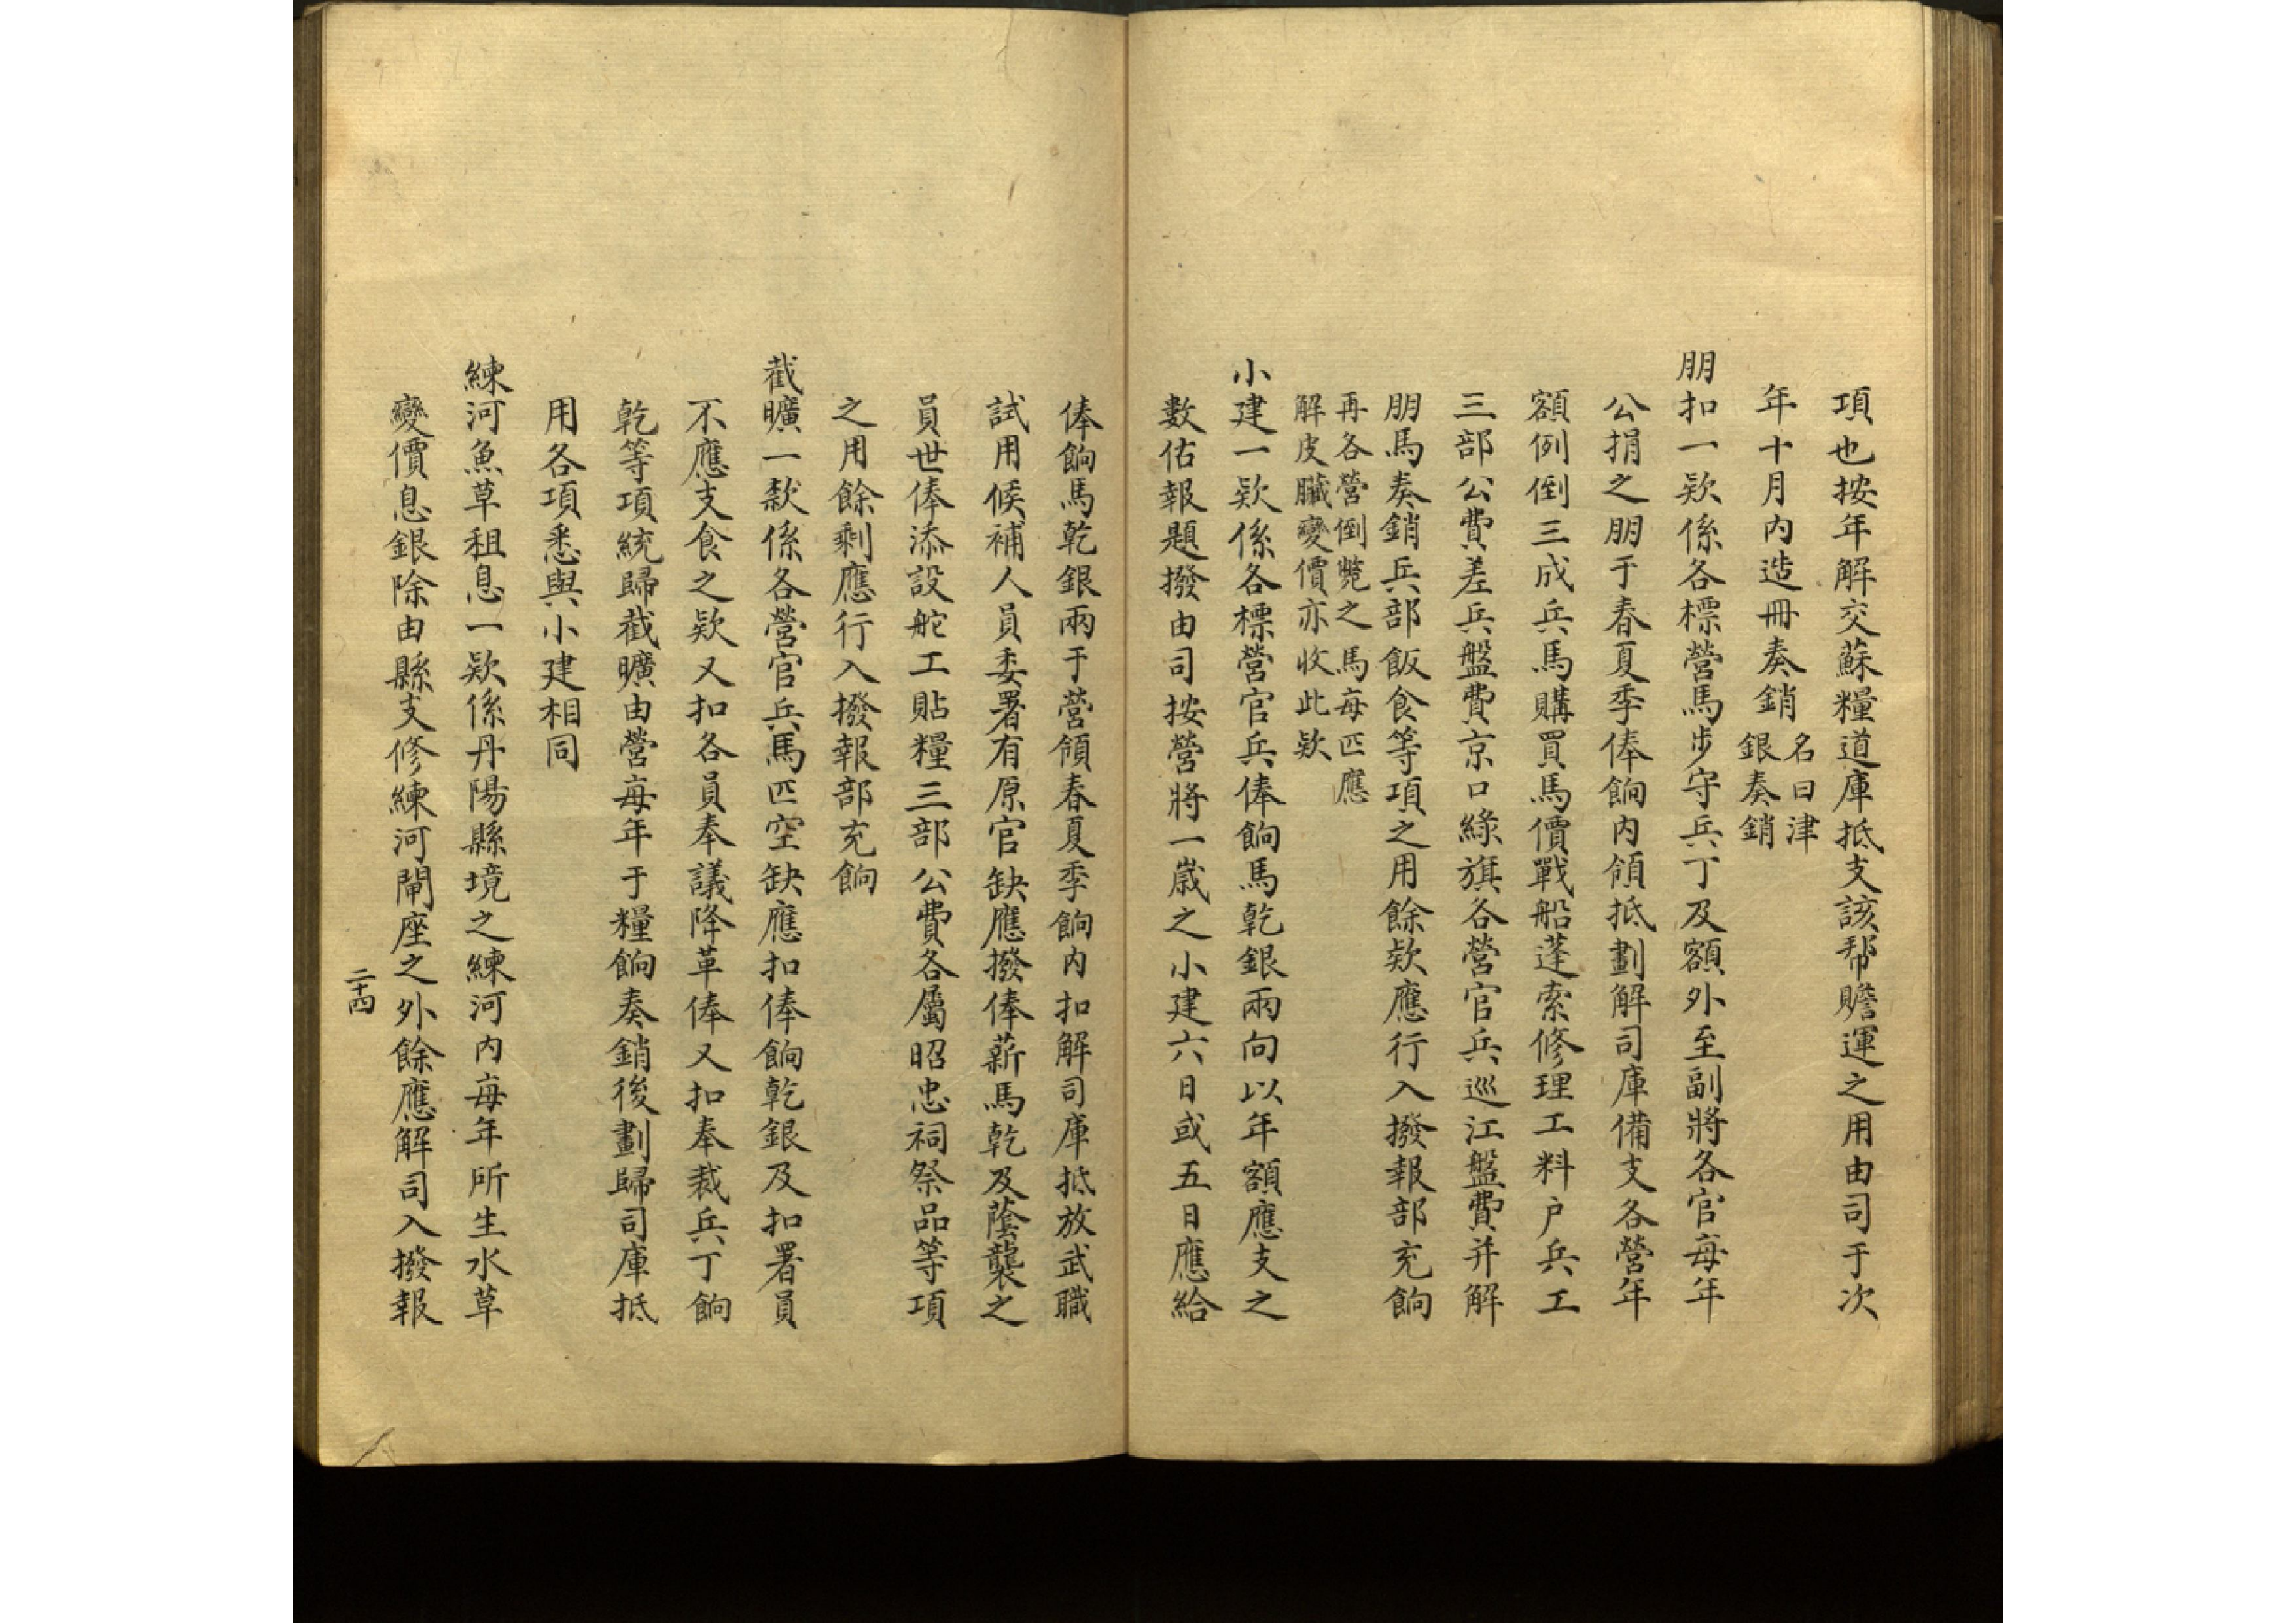 項也按年解交蘇糧道庫抵支該帮贍運之用由司于次
年十月内造冊奏銷
名曰津
銀奏銷
朋扣一欵係各標營馬步守兵丁及額外至副將各官每年
公捐之朋于春夏季俸餉内領抵劃解司庫備支各營年
額例倒三成兵馬購買馬價戰船蓬索修理工料户兵工
三部公費差兵盤費京口綠旗各營官兵巡江盤費并解
朋馬奏銷兵部飯食等項之用餘欵應行入撥報部充餉
再各營倒斃之馬每匹應
解皮臟變價亦收此欵
小建一欵係各標營官兵俸餉馬乾銀兩向以年額應支之
數估報題撥由司按營將一歲之小建六日或五日應給
俸餉馬乾銀兩于營領春夏季餉内扣解司庫抵放武職
試用候補人員委署有原官缺應撥俸薪馬乾及蔭襲之
員世俸添設舵工貼糧三部公費各屬昭忠祠祭品等項
之用餘剩應行入撥報部充餉
截曠一款係各營官兵馬匹空缺應扣俸餉乾銀及扣署員
不應支食之欵又扣各員奉議降革俸又扣奉裁兵丁餉
乾等項統歸截曠由營每年于糧餉奏銷後劃歸司庫抵
用各項悉與小建相同
練河魚草租息一欵係丹陽縣境之練河内每年所生水草
變價息銀除由縣支修練河閘座之外餘應解司入撥報
二十四